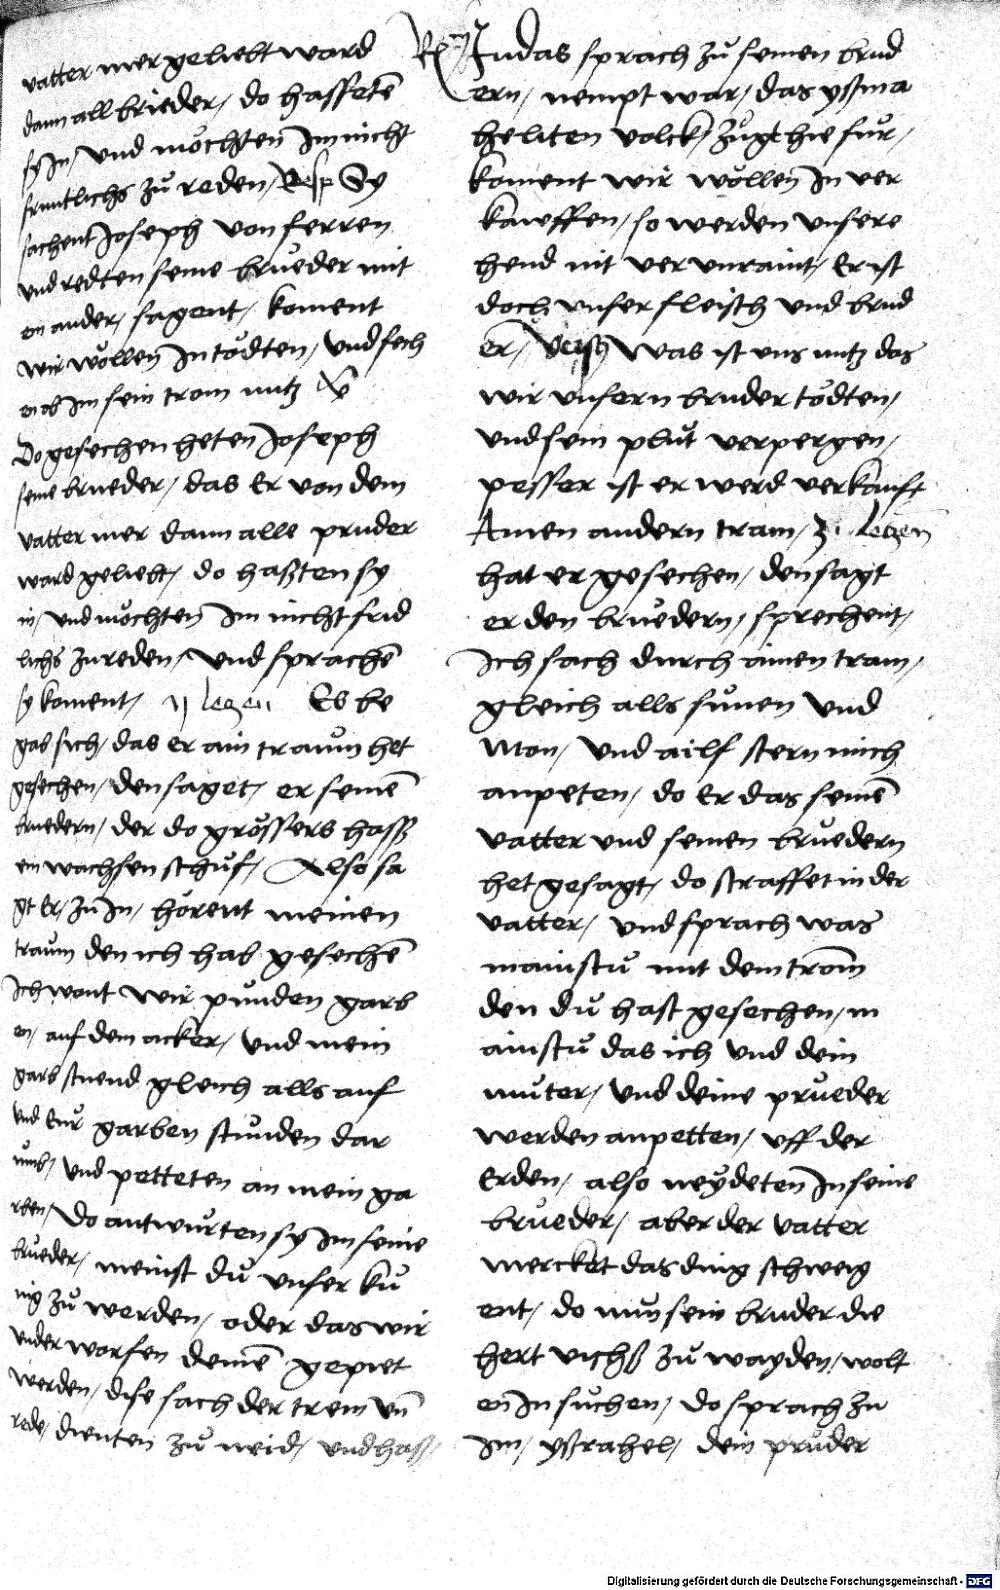 vatter mer geliebt ward
dann all brieder / do hasseten̄
sy in / und möchten im nicht
fruntlichs zů reden / Resp Sy
sachent Joseph von ferren
und redten seine brueder mit
ein ander / sagent / koment
wir wöllen in tödten / und sech
en ob im sein trom nutz
Do gesechen heten Joseph
seine brueder / das Er von dem
vatter mer dann alle pruder
ward geliebt / do haßten sy
in / und möchten im nicht frid
lichs zu reden / und sprachen̄
sy koment / ij lezen Es be
gab sich / das er ain traum het
gesechen / den saget / er seinen̄
bruedern / der do grössers hassz
ein wachsen schůf / Also sa
gt Er / zu In / hörent meinen
traum den ich hab gesechen̄
Ich wont wir punden garb
en / auf dem acker / und mein
garb stuend gleich alls auf
und Eur garben stunden dar
umb / und petteten an mein ga
rben / Do antwurten sy im seine
brueder / meinst du unser kü
nig zů werden / oder das wir
under worfen deinem̄ gepiet
werden / dise sach der trem un̄
rede / dienten zů neid / und haß /
Judas sprach zů seinen brud
ern / nempt war / das yssma
heliten volck / zugt hie für /
koment wir wöllen in ver
kauffen / so werden unsere
hend nit verunraint / Er ist
doch unser fleisch und brud
er / Verss Was ist uns nutz das
wir unsern bruder tödten /
und sein plůt verpergen /
pesser ist er werd verkauft
Ainen andern tram / lezen
hat er gesechen / den sagt
er den bruedern / sprechent /
Ich sach durch ainen tram /
gleich alls sunen und
Mon / und ailf stern mich
anpeten / do Er das seinem̄
vatter und seinen bruedern
het gesagt / do straffet in der
vatter / und sprach was
mainstu mit dem trom̄
den du hast gesechen / m
ainstu das ich und dein
muter / und deine prueder
werden anpetten / uff der
Erden / also neydeten in seine
brueder / aber der vatter
mercket das ding schweig
ent / do nun sein bruder die
hert vichß zů wayden / wolt
en̄ in suchen / do sprach zu
im / ysrahel / dein pruder
Digitalisierung gefördert durch die Deutsche Forschungsgemeinschaft - DFG